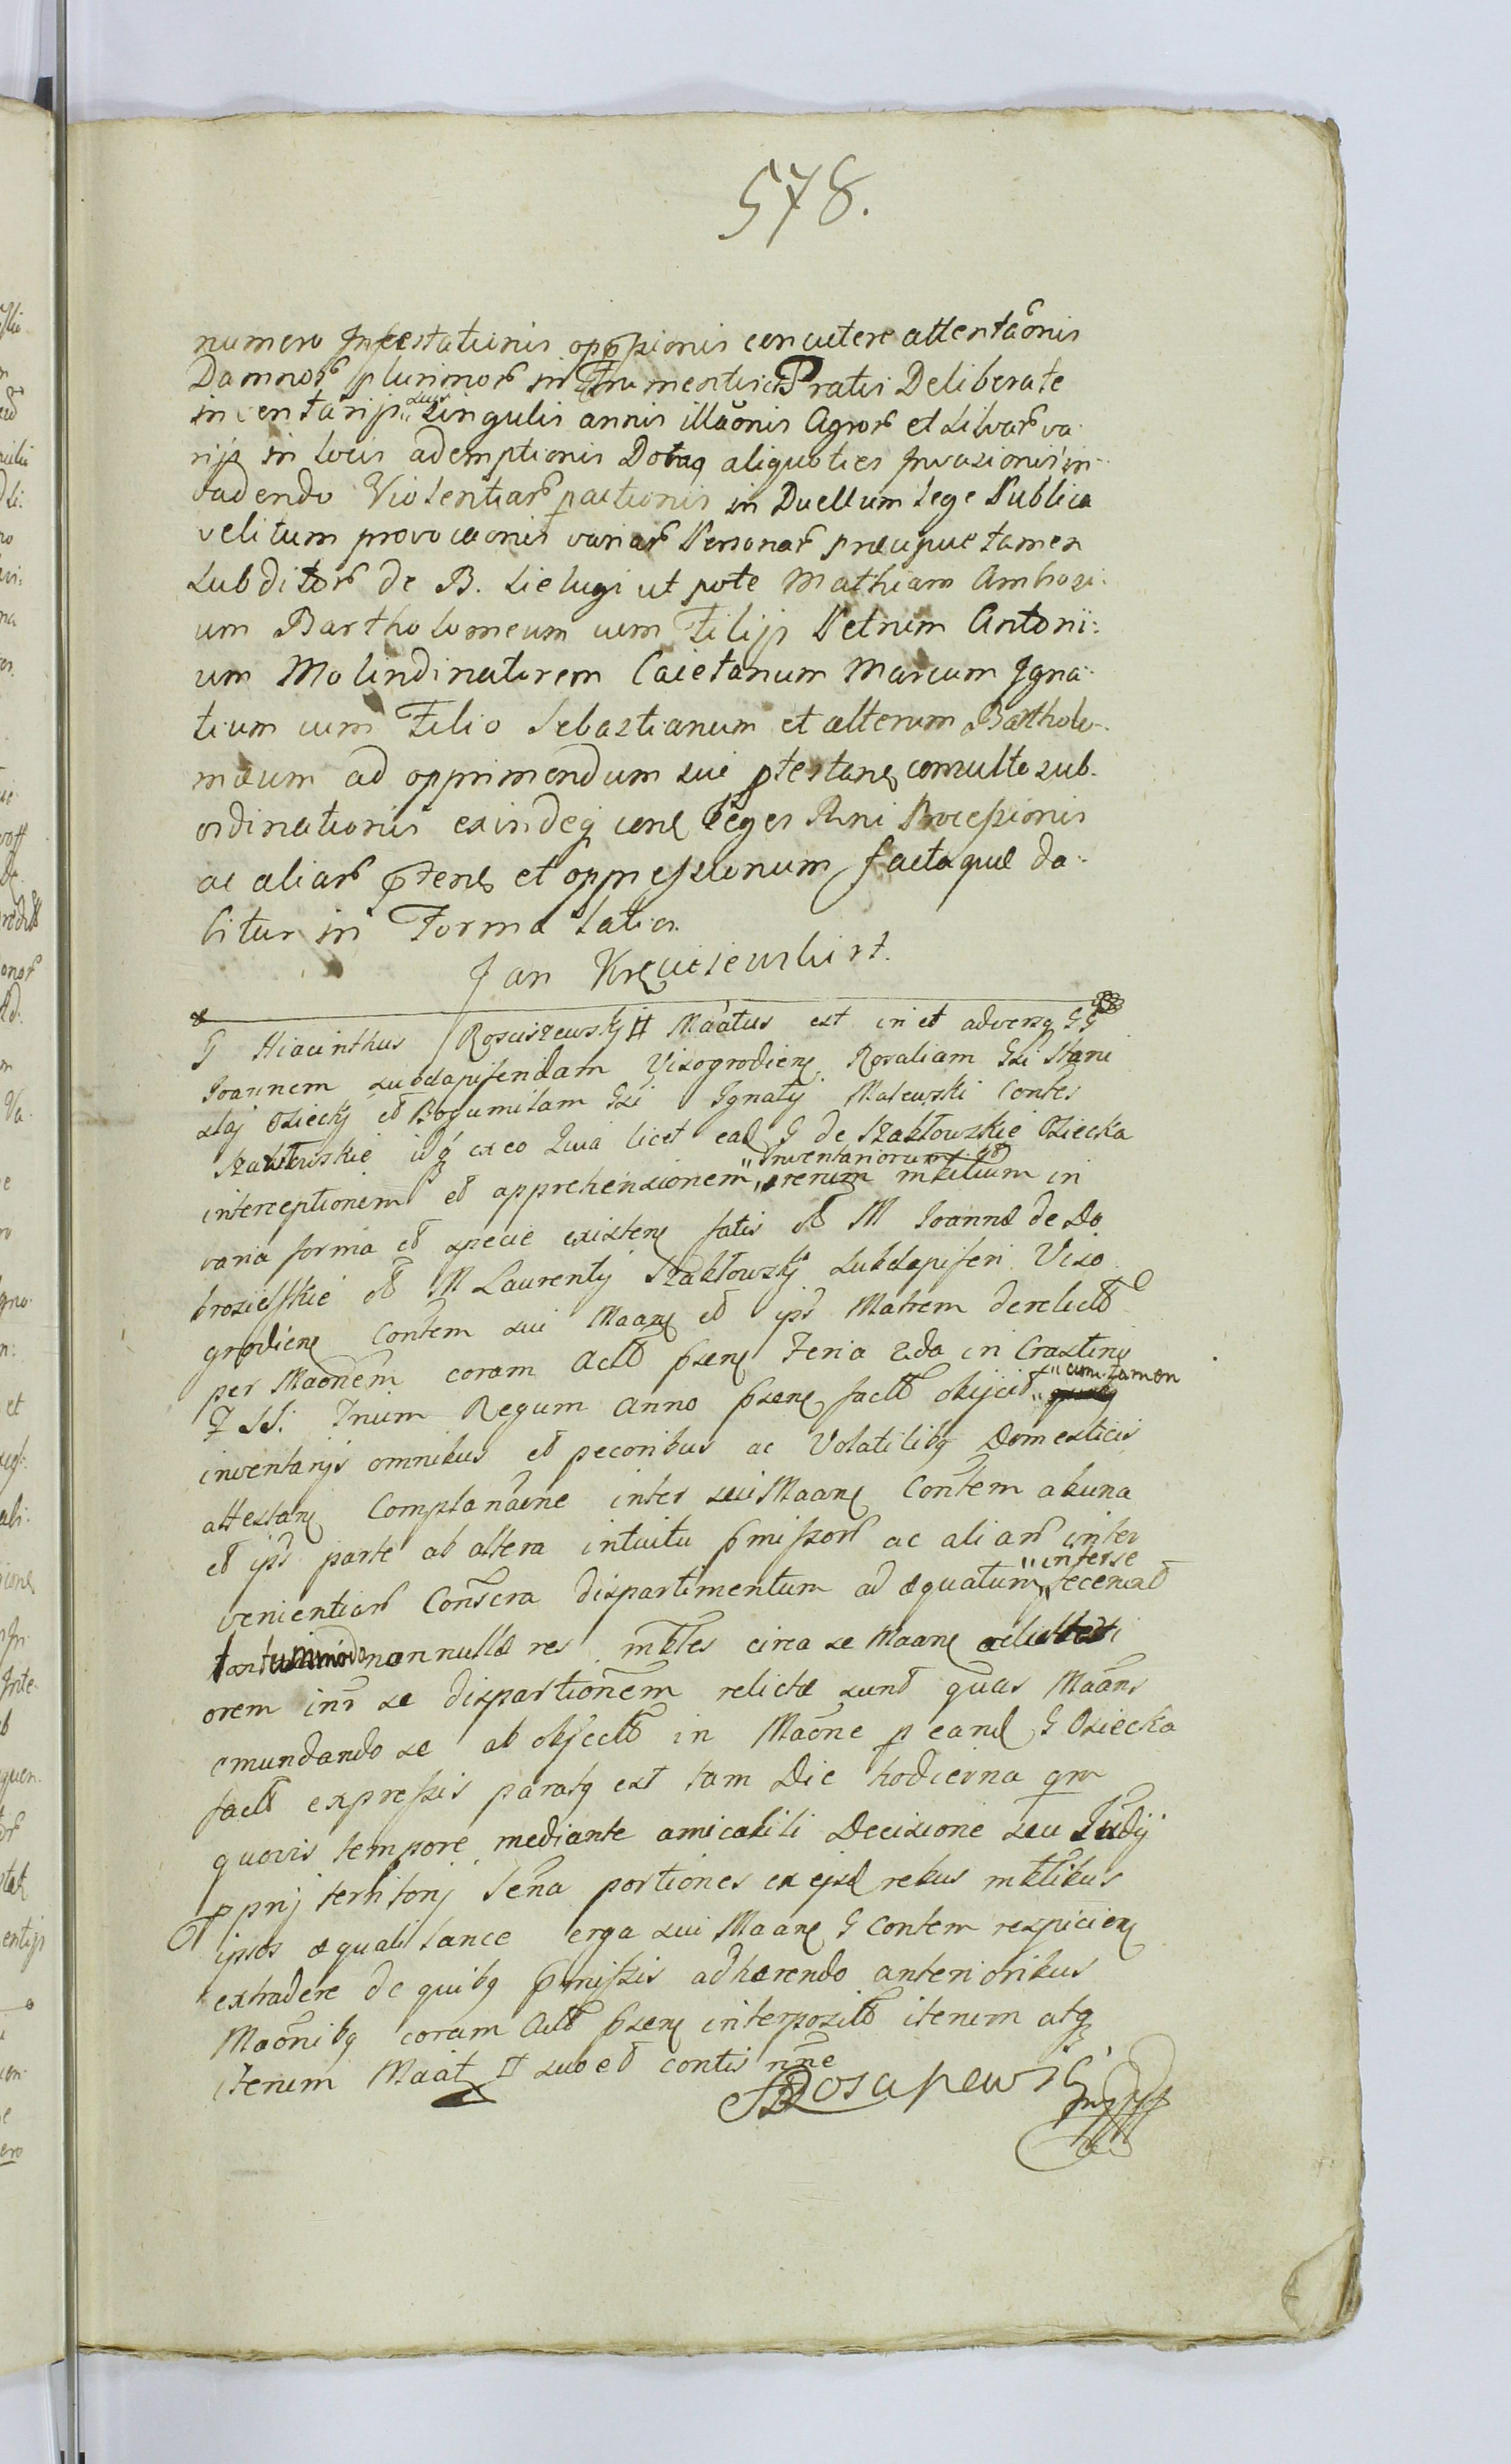 578.
numero Infestationis oppsionis concutere attentaonis
Damnor plurimor in Frumentis et Pratis Deliberate
inventarijs suis singulis annis illaonis Agror et Silvar va
rijs in locis ademptionis Dotaq aliquoties Invasionis in
vadendo Violentiar pactionis in Duellum Lege Publica
velitum provocaonis variar Personar præcipue tamen
Subditor de B. Sielugi ut pote Mathiam Ambrosi:
um Bartholomeum cum Filijs Petrum Antoni:
um Molindinatorem Caietanum Marcum Igna:
tium cum Filio Sebastianum et alterum Bartholo-
mæum ad opprimendum sui ptestans consulto sub-
ordinationis exindeq conl Leges Rni Processionis
ac aliar ptens et oppressionum factaque da:
bitur in Forma Latior
Jan Krzyciewski rt.
G Hiacinthus Rosciszewskij # Maatus est in et adversq GG
Joannem Subdapiferidam Vizogrodiens Rosaliam Gsi Stani
slaj Osiecky et Bogumilam Gsi Ignatij Malewski Contes
Szabłowskie idq ex eo Quia licet ead G de Szabłowskie Osiecka
interceptionem et apprehensionem Inventariorum et rerum mbilium in
varia forma et specie existens fatis ol M Joannæ de Do
brosielskie ol M Laurentij Szabłowskj Subdapiferi Vizo
grodiens Contem sui Maans et ips Matrem derelict
per Maonem coram Actis psens Feria 2da in Crastino
F SS. Trium Regum Anno psens fact objicit cum tamen
inventarijs omnibus et pecoribus ac Volatilibq Domesticis
attestans Complanaone inter sui Maans Contem ab una
et ips parte ab altera intuitu pmissor ac aliar inter
venientiar Conscra dispartimentum adæquatum inter se fecerunt
tantummodo nonnullæ res mbles circa se Maans
orem inr se dispartionem relictæ sunt quas Maans
emundando se ab object in Maone p eand G Osiecka
fact expressis paratq est tam Die hodierna qm
quovis tempore mediante amicabili Decisione seu Judij
ppnj territorij Sena portiones ex ejsd rebus mblibus
ipsos æquali lance erga sui Maans G Contem respiciens
extradere de quibq pmissis adhærendo anterioribus
Maonibq coram Actis psens interposit iterum atq
iterum Maat # suo et contis nne
HRosciszewski mpp